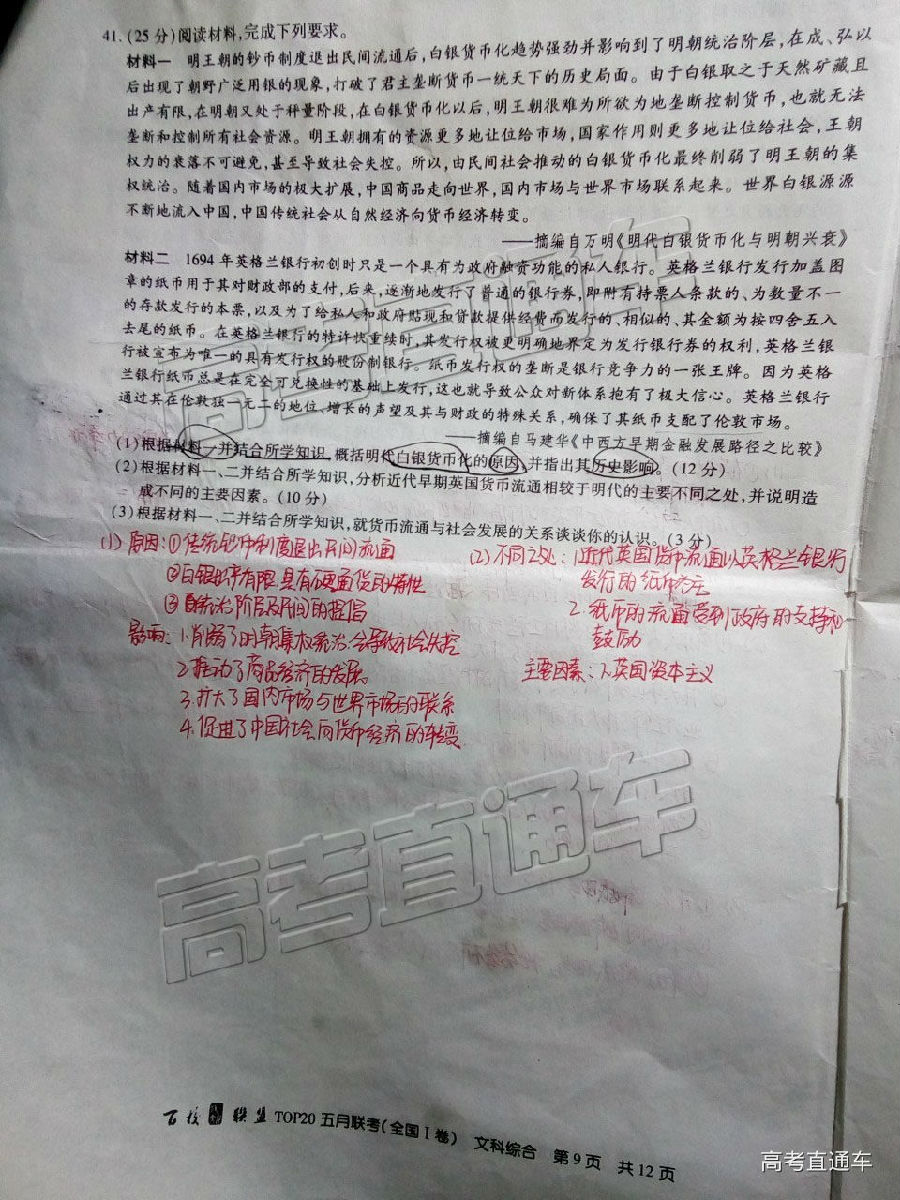 41.(25分)阅读材料,完成下列要求。
材料一 明王朝的钞币制度退出民间流通后,白银货币化趋势强劲并影响到了明朝统治阶层,在成、弘以
后出现了朝野广泛用银的现象,打破了君主垄断货币一统天下的历史局面。由于白银取之于天然矿藏且
出产有限,在明朝又处于秤量阶段,在白银货币化以后,明王朝很难为所欲为地垄断控制货币,也就无法
垄断和控制所有社会资源。明王朝拥有的资源更多地让位给市场,国家作用则更多地让位给社会,王朝
权力的衰落不可避免,甚至导致社会失控。所以,由民间社会推动的白银货币化最终削弱了明王朝的集
权统治。随着国内市场的极大扩展,中国商品走向世界,国内市场与世界市场联系起来。世界白银源源
不断地流入中国,中国传统社会从自然经济向货币经济转变。
——摘编自万明《明代白银货币化与明朝兴衰》
材料二 1694年英格兰银行初创时只是一个具有为政府融资功能的私人银行。英格兰银行发行加盖图
章的纸币用于其对财政部的支付,后来,逐渐地发行了普通的银行券,即附有持票人条款的、为数量不一
的存款发行的本票,以及为了给私人和政府贴现和贷款提供经费而发行的、相似的、其金额为按四舍五入
去尾的纸币。在英格兰银行的特许状重续时,其发行权被更明确地界定为发行银行券的权利,英格兰银
行被宣布为唯一的具有发行权的股份制银行。纸币发行权的垄断是银行竞争力的一张王牌。因为英格
兰银行纸币总是在完全可兑换性的基础上发行,这也就导致公众对新体系抱有了极大信心。英格兰银行
通过其在伦敦独一无二的地位、增长的声望及其与财政的特殊关系,确保了其纸币支配了伦敦市场。
——摘编自马建华《中西方早期金融发展路径之比较》
(1)根据材料一并结合所学知识,概括明代白银货币化的原因,并指出其历史影响。(12分)
(2)根据材料一、二并结合所学知识,分析近代早期英国货币流通相较于明代的主要不同之处,并说明造
成不同的主要因素。(10分)
(3)根据材料一、二并结合所学知识,就货币流通与社会发展的关系谈谈你的认识。(3分)
(1) 原因:①传统钞币制度退出民间流通
②白银时有限,具有硬通货的特性
③ 统治阶层及民间的提倡
影响:1.削弱了明朝集权统治,会导致社会失控
2.推动了商品经济的发展
3.扩大了国内市场与世界市场的联系
4.促进了中国社会向货币经济的转变
(2)不同之处:1.近代英国货币流通以英格兰银行
发行的纸币为主
2.纸币的流通受到政府的支持和
鼓励
主要因素:1.英国资本主义
高考直通车
高考直通车
百校联盟 TOP20 五月联考(全国Ⅰ卷) 文科综合 第9页 共12页
高考直通车